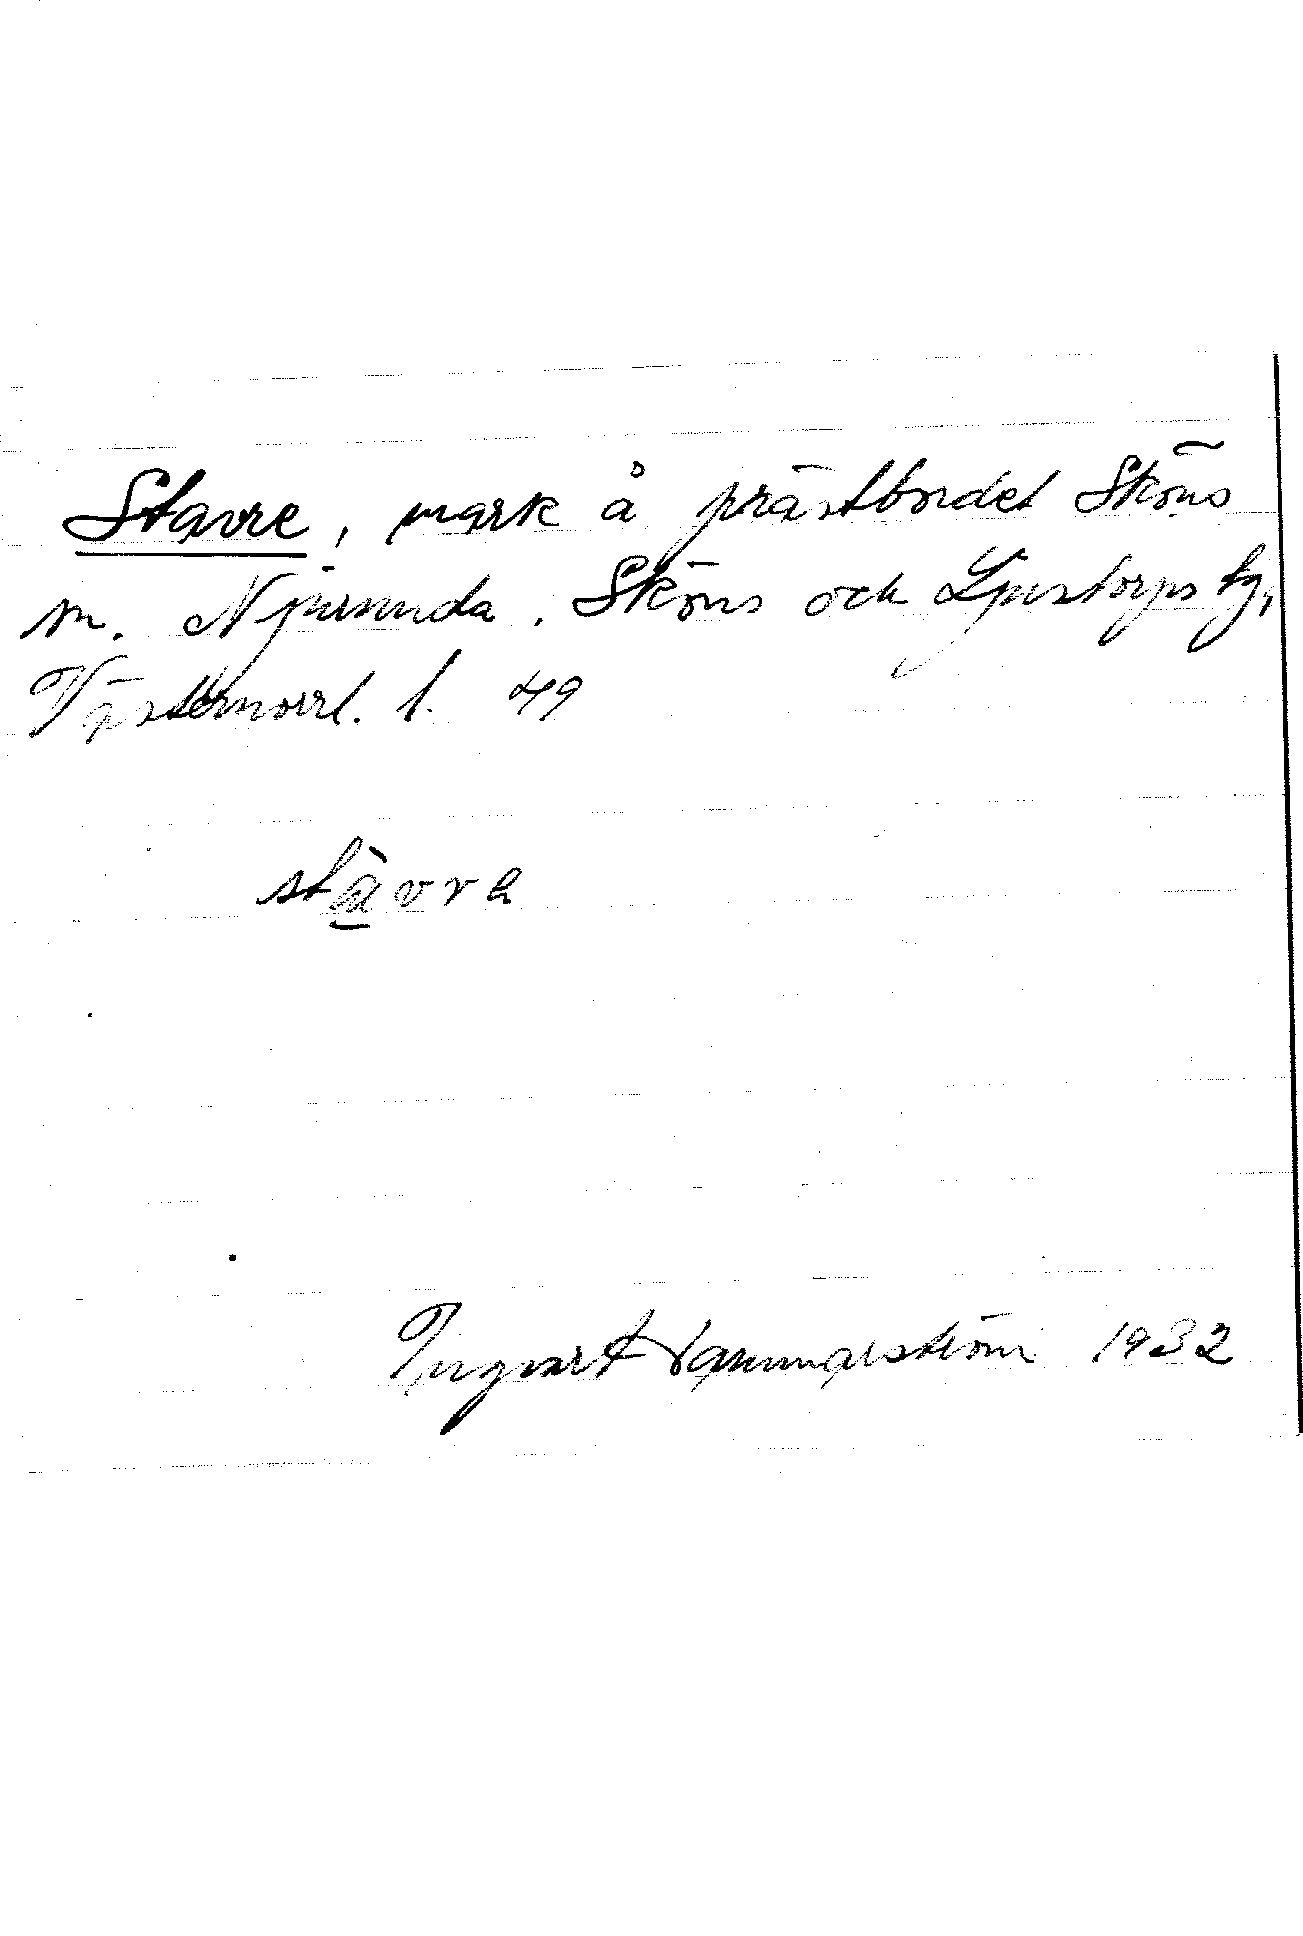 Stavre, mark å prästbordet Sköns
sn. Njurunda, Sköns och Ljustorps tg,
Västernorrl. l. 49
stàvra
Ingvart Hammarström 1932